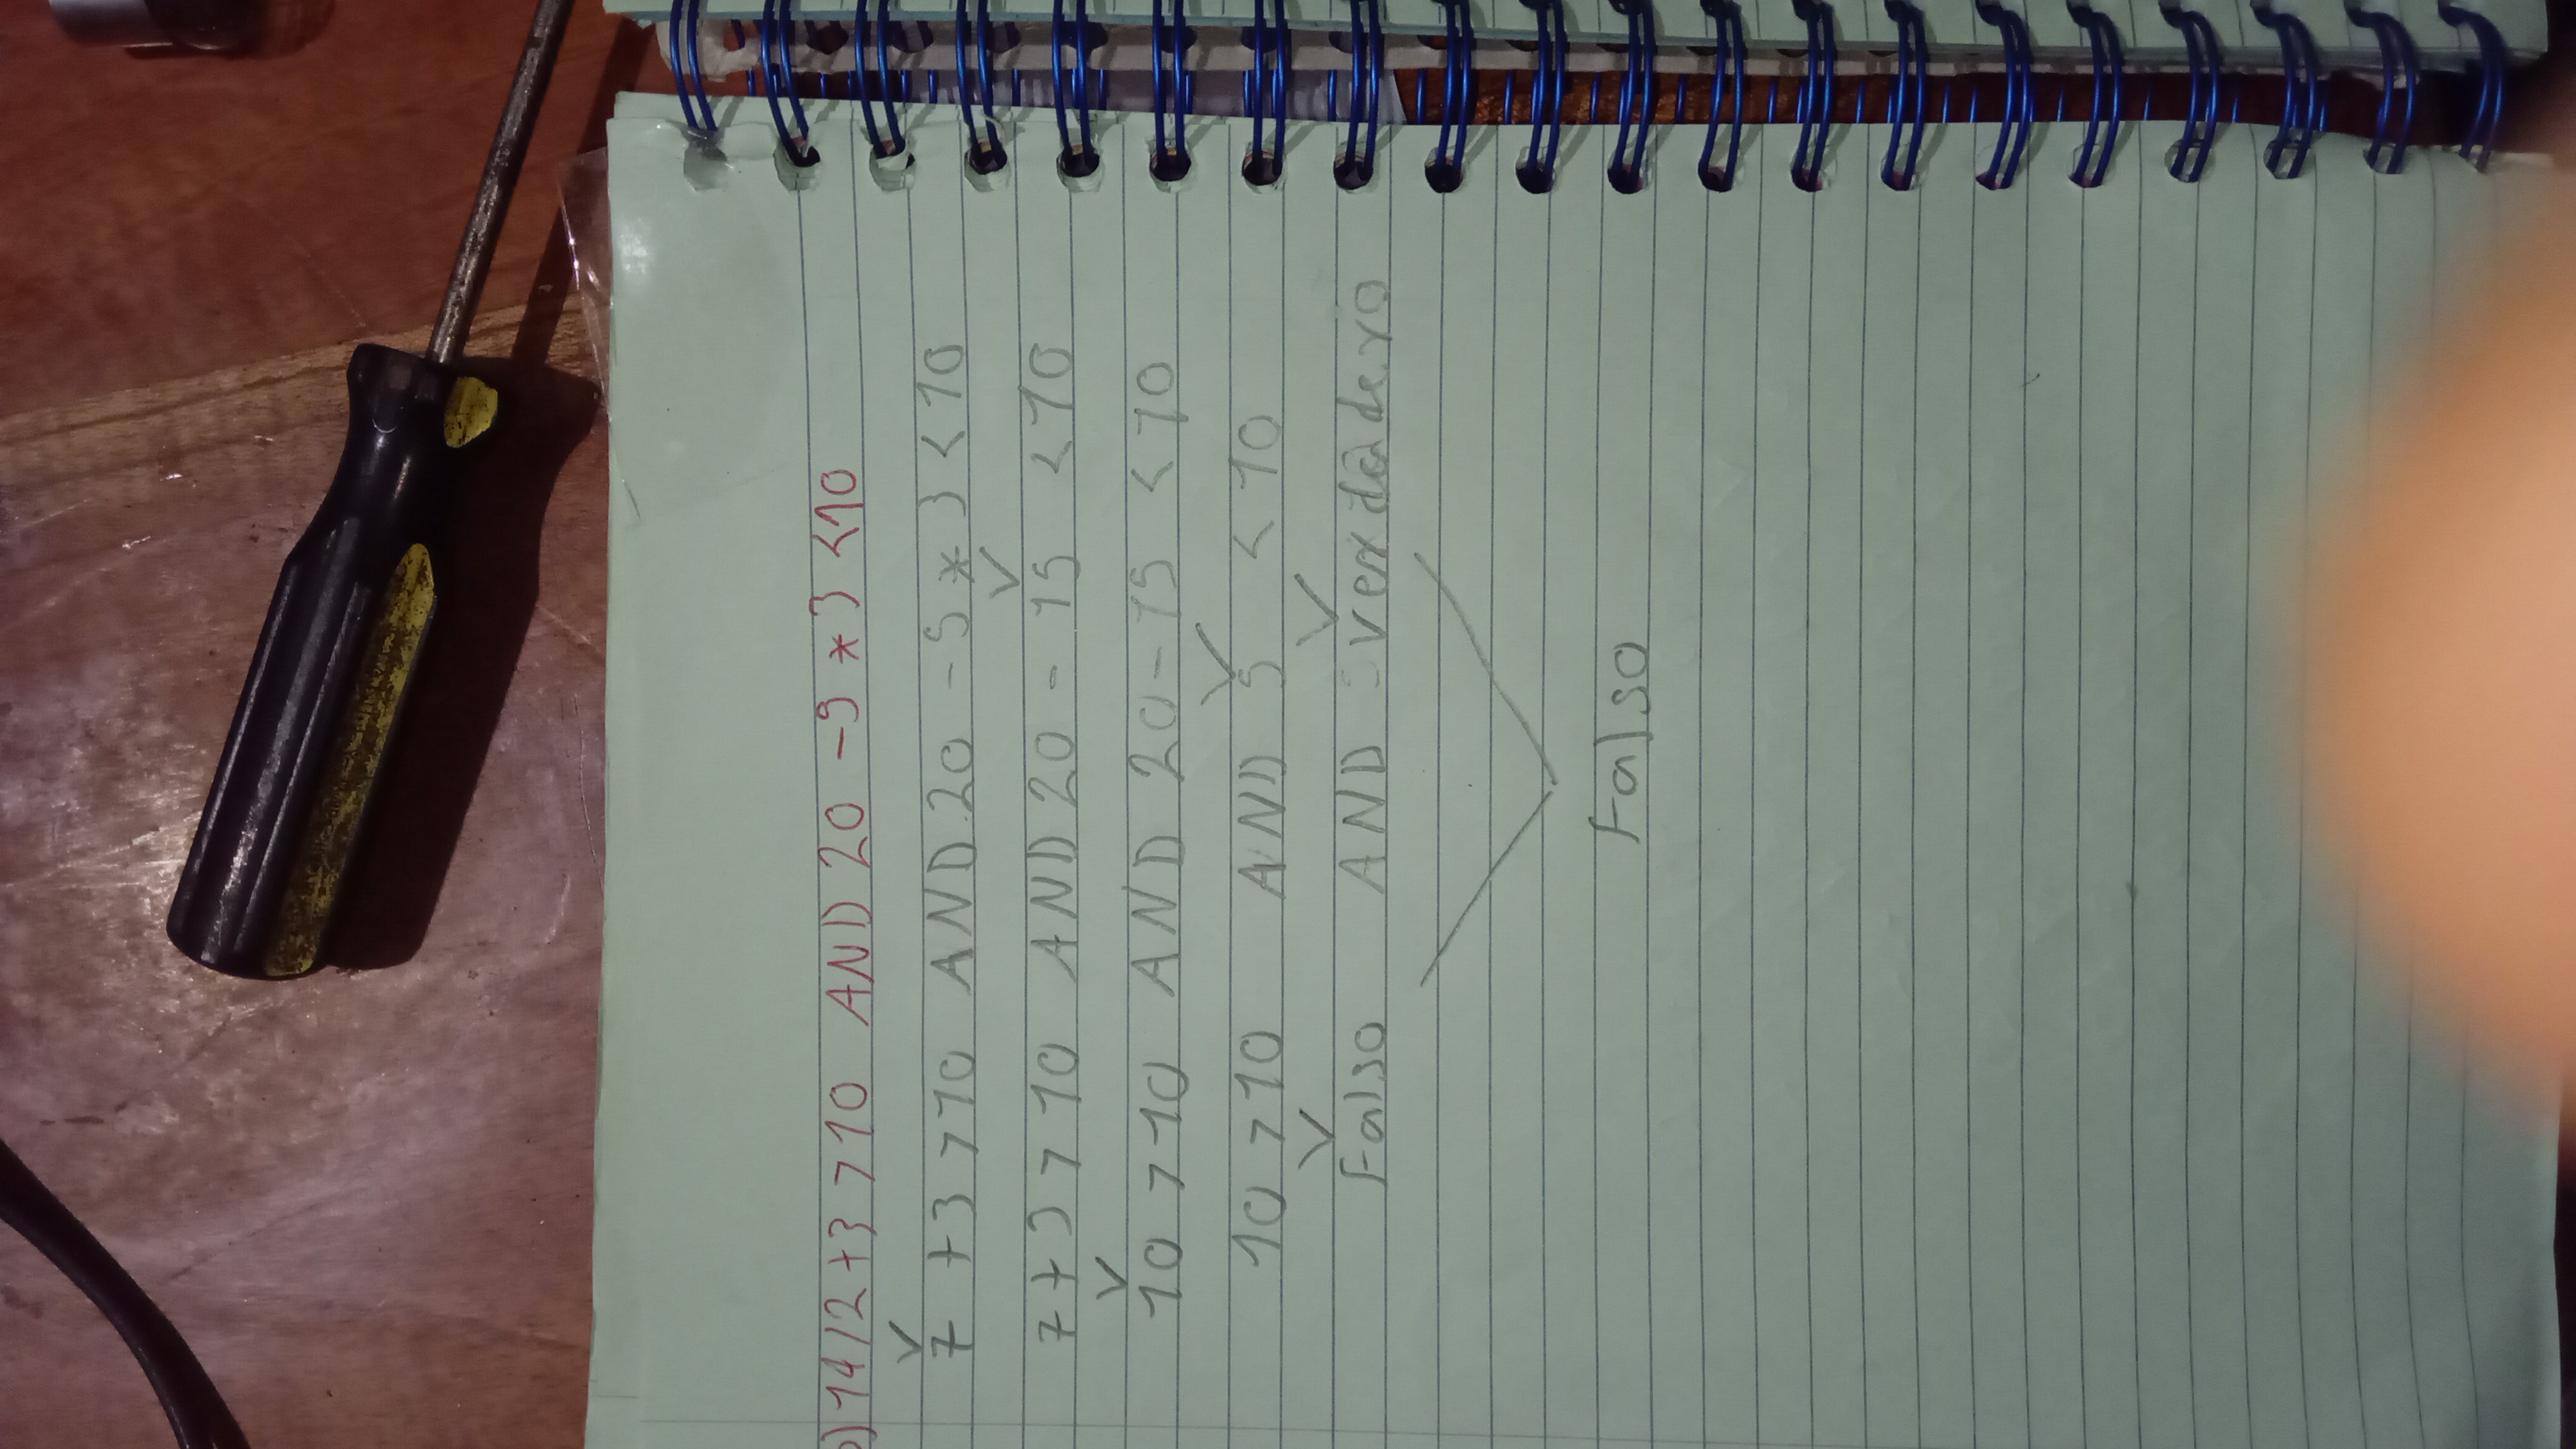 b) 14/2+3>10 AND 20-5*3<10
7+3>10 AND 20-5*3<10
7+3>10 AND 20-15<10
10>10 AND 20-15<10
10>10 AND 5<10
Falso AND verdadero
Falso